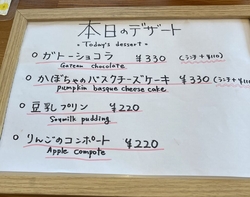 本日のデザート
・Today's dessert・
○ ガトーショコラ ¥330 (ランチ+¥110)
Gateau chocolate
○ かぼちゃのバスクチーズケーキ ¥330 (ランチ+¥110)
pumpkin basque cheese cake
○ 豆乳プリン ¥220
Soymilk pudding
○ りんごのコンポート ¥220
Apple compote